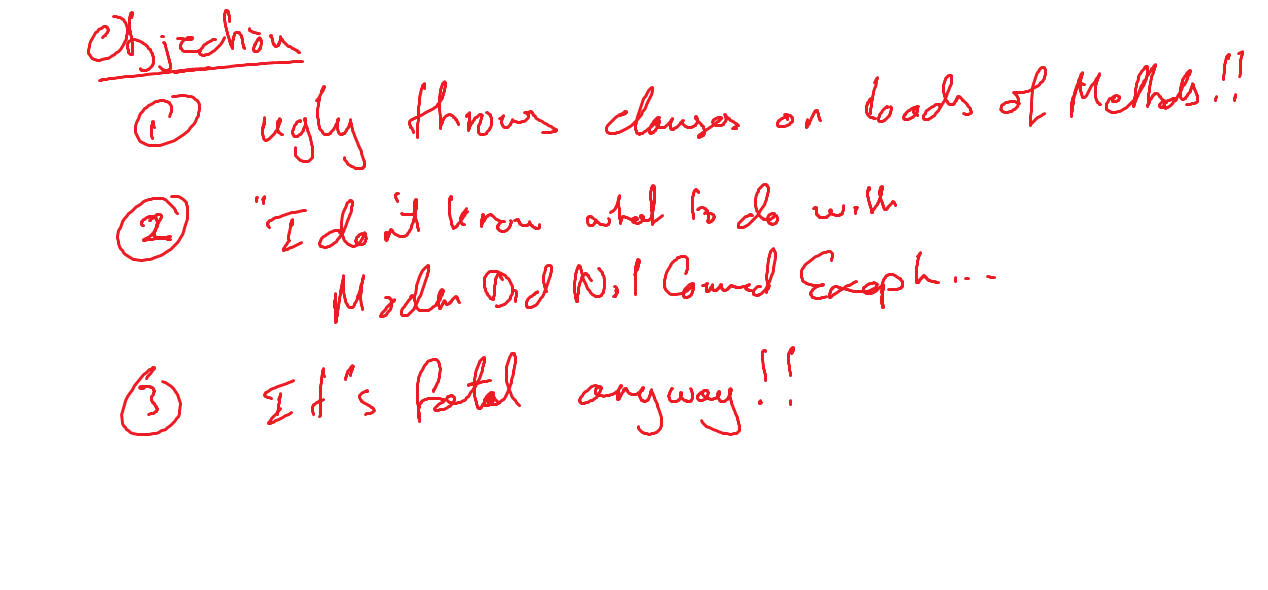 Objection
① ugly throws clauses on loads of Methods!!
② "I don't know what to do with
Modem Did Not Connect Except...
③ It's fatal anyway!!